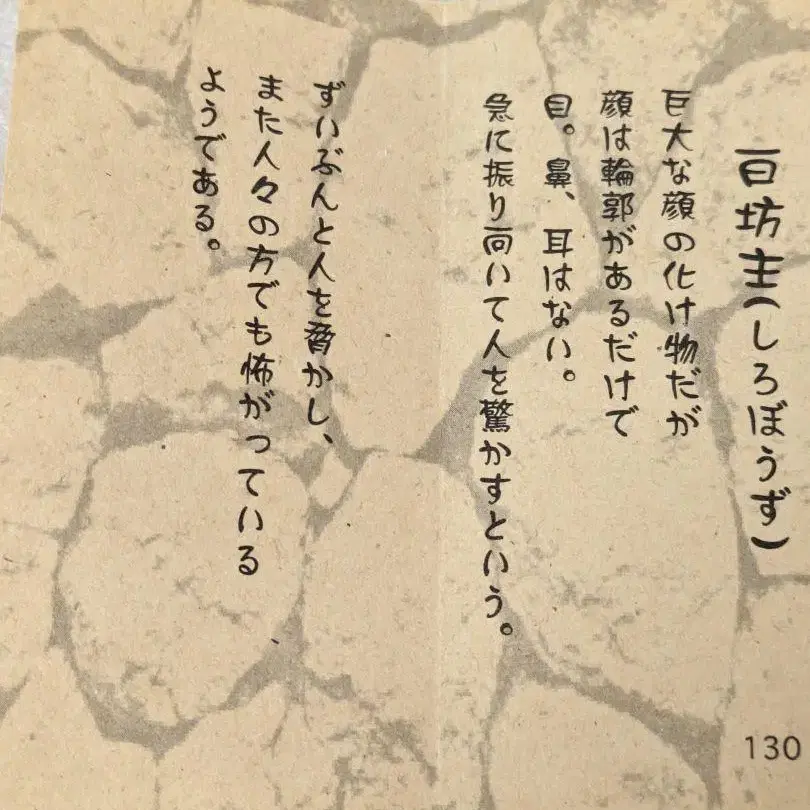 白坊主(しろぼうず)
巨大な顔の化け物だが
顔は輪郭があるだけで
目。鼻、耳はない。
急に振り向いて人を驚かすという。
ずいぶんと人を脅かし、
また人々の方でも怖がっている
ようである。
130